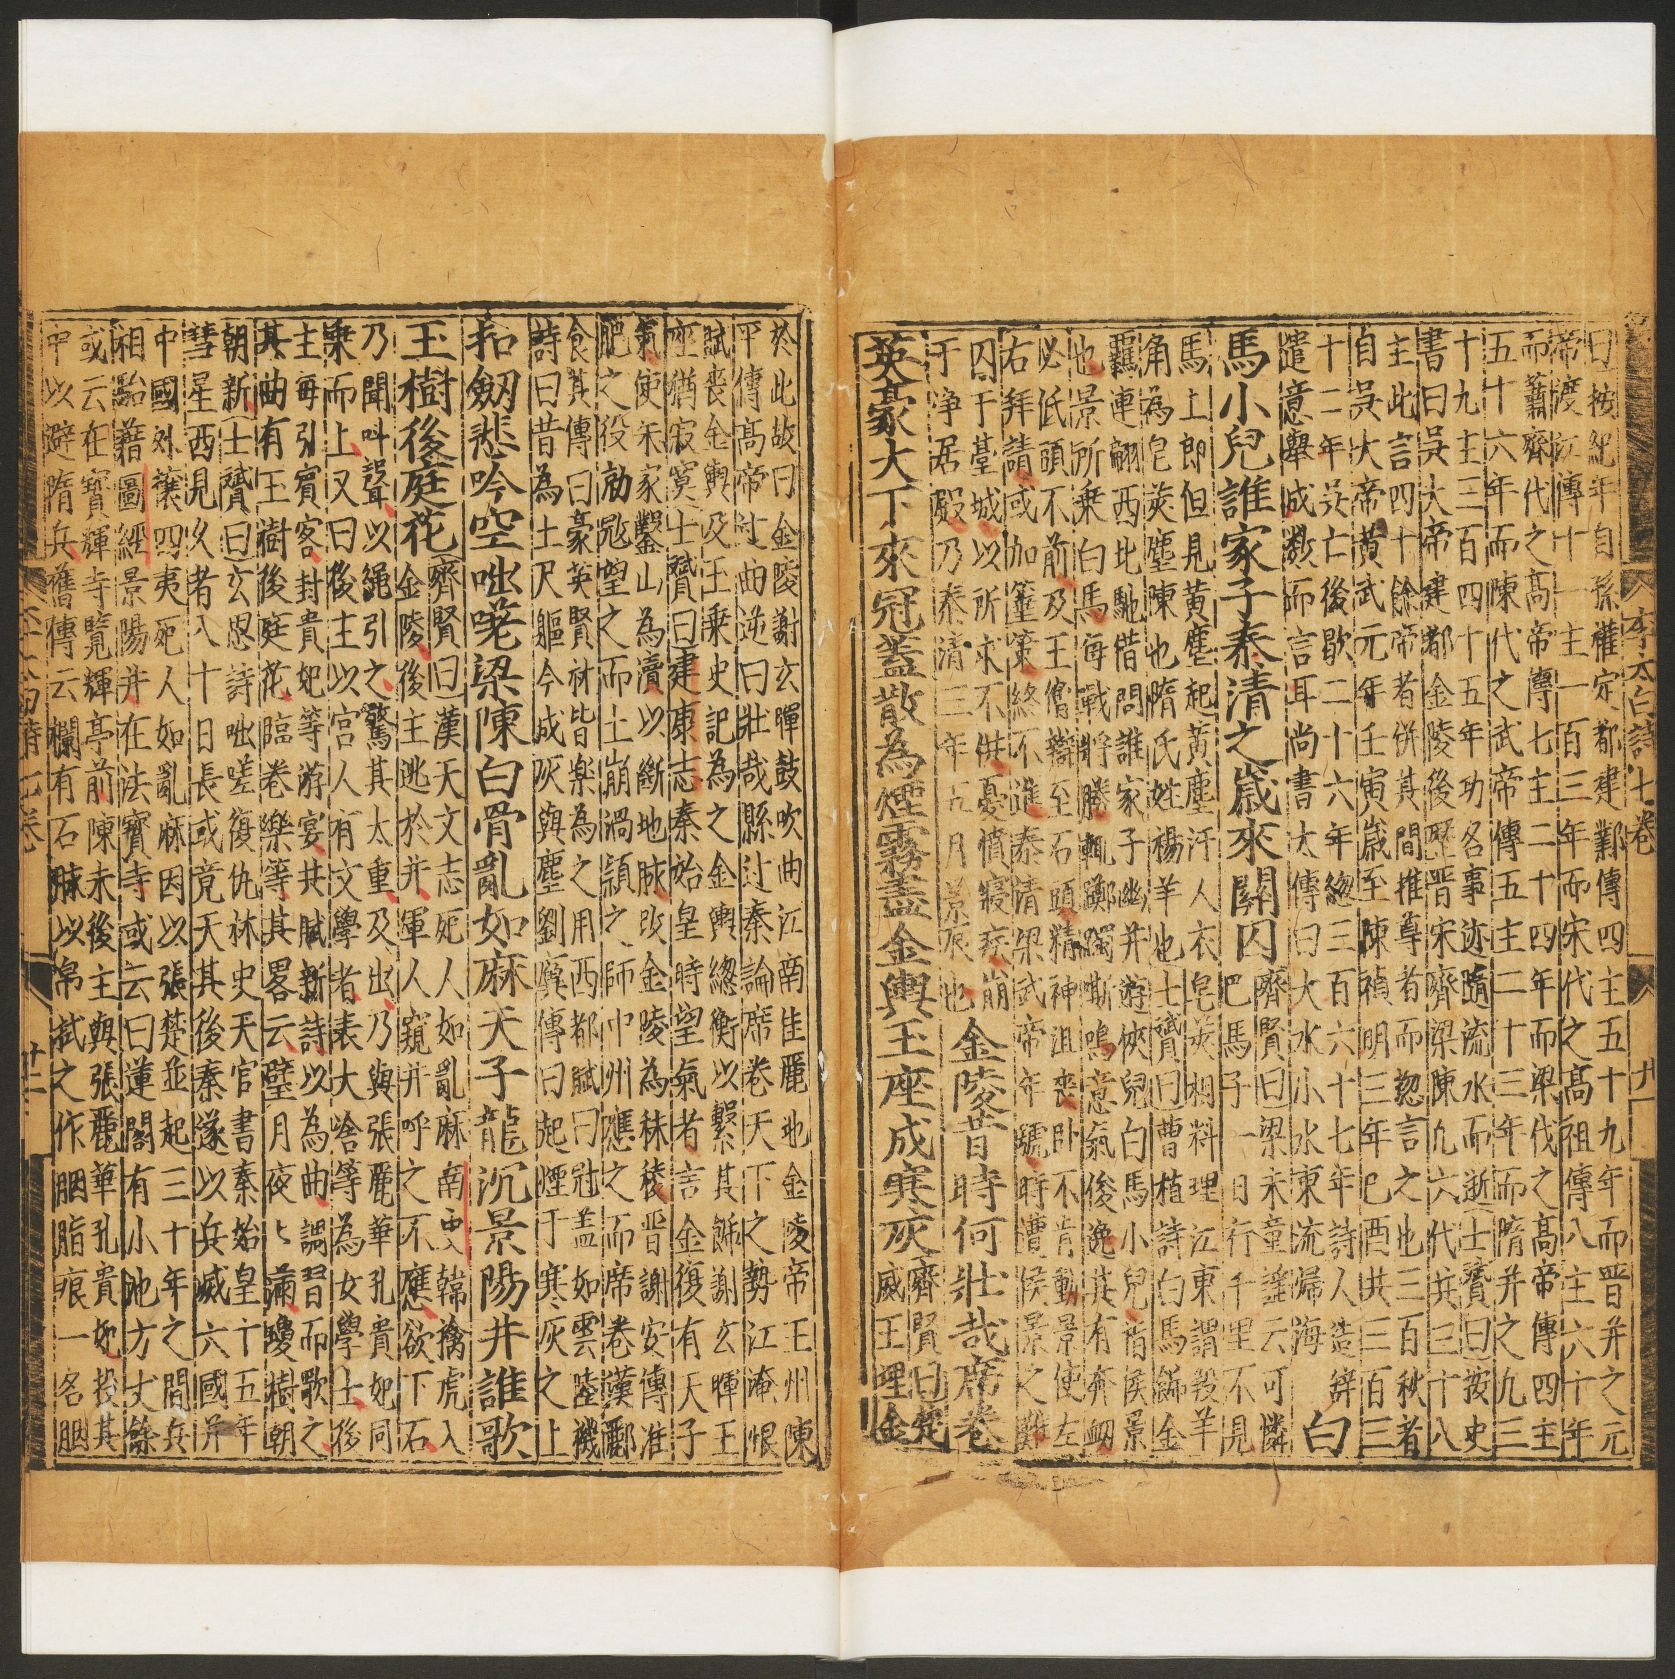 曰按紀年自孫權定都建鄴傳四主五十九年而晋并之元
帝渡江傳十一主一百三年而宋代之髙祖傳八主六十年
而蕭齊代之髙帝傳七主二十四年而梁伐之髙帝傳四主
五十六年而陳代之武帝傳五主二十三年而隋并之九三
十九主三百四十五年功名事迹隨流水而逝士贇曰按史
書曰吴大帝建都金陵後歷晋宋齊梁陳九六代共三十八
主此言四十餘帝者併其間推尊者而揔言之也三百秋者
自吴大帝黄武元年壬寅歲至陳禎明三年巳酉共三百三
十二年吴亡後歇二十六年緫三百六十七年詩人造辭
遣意舉成數而言耳尚書大傳曰大水小水東流歸海 白
馬小兒誰家子泰清之歲來關囚齊賢曰梁末童謡云可憐
巴馬子一日行千里不見
馬上郎但見黄塵起黄塵汙人衣皂莢相料理江東謂羖羊
角為皂莢塵陳也隋氏姓楊楊羊也士贇曰曹植詩白馬錦金
羈連翩西北馳借問誰家子幽并遊俠兒白馬小兒指侯景
也景所乗白馬每戰將勝輒躑躅嘶鳴意氣俊逸其有奔衂
必低頭不前及王僧辯至石頭精神沮喪卧不肯動景使左
右拜請或加箠策終不進泰清梁武帝年號時遭侯景之難
囚于臺城以所求不供憂憤寢疾崩
于淨居殿乃泰清三年五月景辰也 金陵昔時何壯哉席卷
英豪天下來冠蓋散為煙霧盡金輿玉座成寒灰齊賢曰楚
威王埋金
於此故曰金陵謝玄暉鼓吹曲江南佳麗地金陵帝王州陳
平傳髙帝過曲逆曰壯哉縣過秦論席卷天下之勢江淹恨
賦喪金輿及玉乗史記為之金輿緫衡以繫其餙謝玄暉玉
座猶寂寞士贇曰建康志秦始皇時望氣者言金復有天子
氣使朱家鑿山為瀆以斷地脉改金陵為秣稜晋謝安傳淮
肥之役勍㓂望之而土崩渦潁之師中州應之而席卷漢酈
食其傳曰豪英賢材皆楽為之用西都賦曰冠盖如雲陸機
詩曰昔為七尺軀今成灰與塵劉廙傳曰起煙于寒灰之上
扣劒悲吟空咄嗟梁陳白骨亂如麻天子龍沉景陽井誰歌
玉樹後庭花齊賢曰漢天文志死人如亂麻南史韓擒虎入
金陵後主逃於井軍人窺井呼之不應欲下石
乃聞叫聲以繩引之驚其太重及出乃與張麗華孔貴妃同
乗而上又曰後主以宫人有文學者表大捨等為女學士後
主毎引賓客封貴妃等游宴共賦新詩以為曲調習而歌之
其曲有玉樹後庭花臨卷樂等其畧云璧月夜夜滿瓊樹朝
朝新士贇曰玄思詩咄嗟復仇秫史天官書秦始皇十五年
彗星西見久者八十日長或竟天其後秦遂以兵滅六國并
中國外攘四夷死人如亂麻因以張楚並起三十年之間兵
相駘藉圖經景陽井在法寶寺或云曰蓮閣有小池方丈餘
或云在寶輝寺覽輝亭前陳未後主與張麗華孔貴妃投其
中以避隋兵舊傳云欄有石脉以帛拭之作胭脂痕一名胭
李太白詩七卷 九一